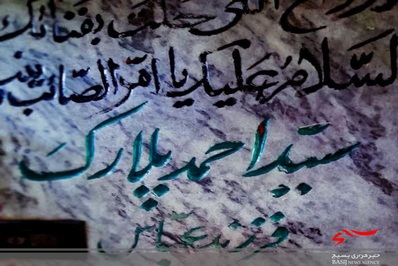 التی حلت بفنائک
السلامُ علیک یا امّ المصائب
سیّد احمد پلارک
فرزند عبّاس
خبرگزاری بسیج
BASIJ NEWS AGENCY